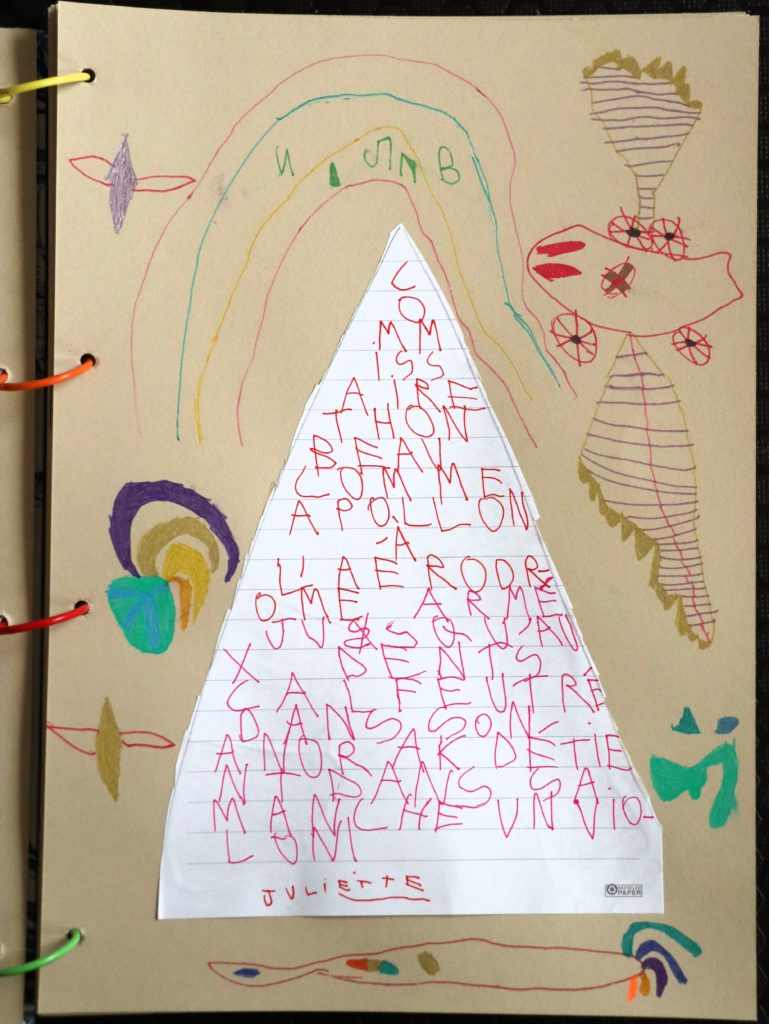 C
O
MM
ISS
AIRE
THON
BEAU
COMME
APOLLON
À
L'AÉRODR
OME ARMÉ
JUSSQU'AU
X DENTS
CALFEUTRÉ
DANS SON
ANORAK DÉTIE
NT DANS SA
MANCHE UN VIO-
LON!
JULIETTE
PAPER